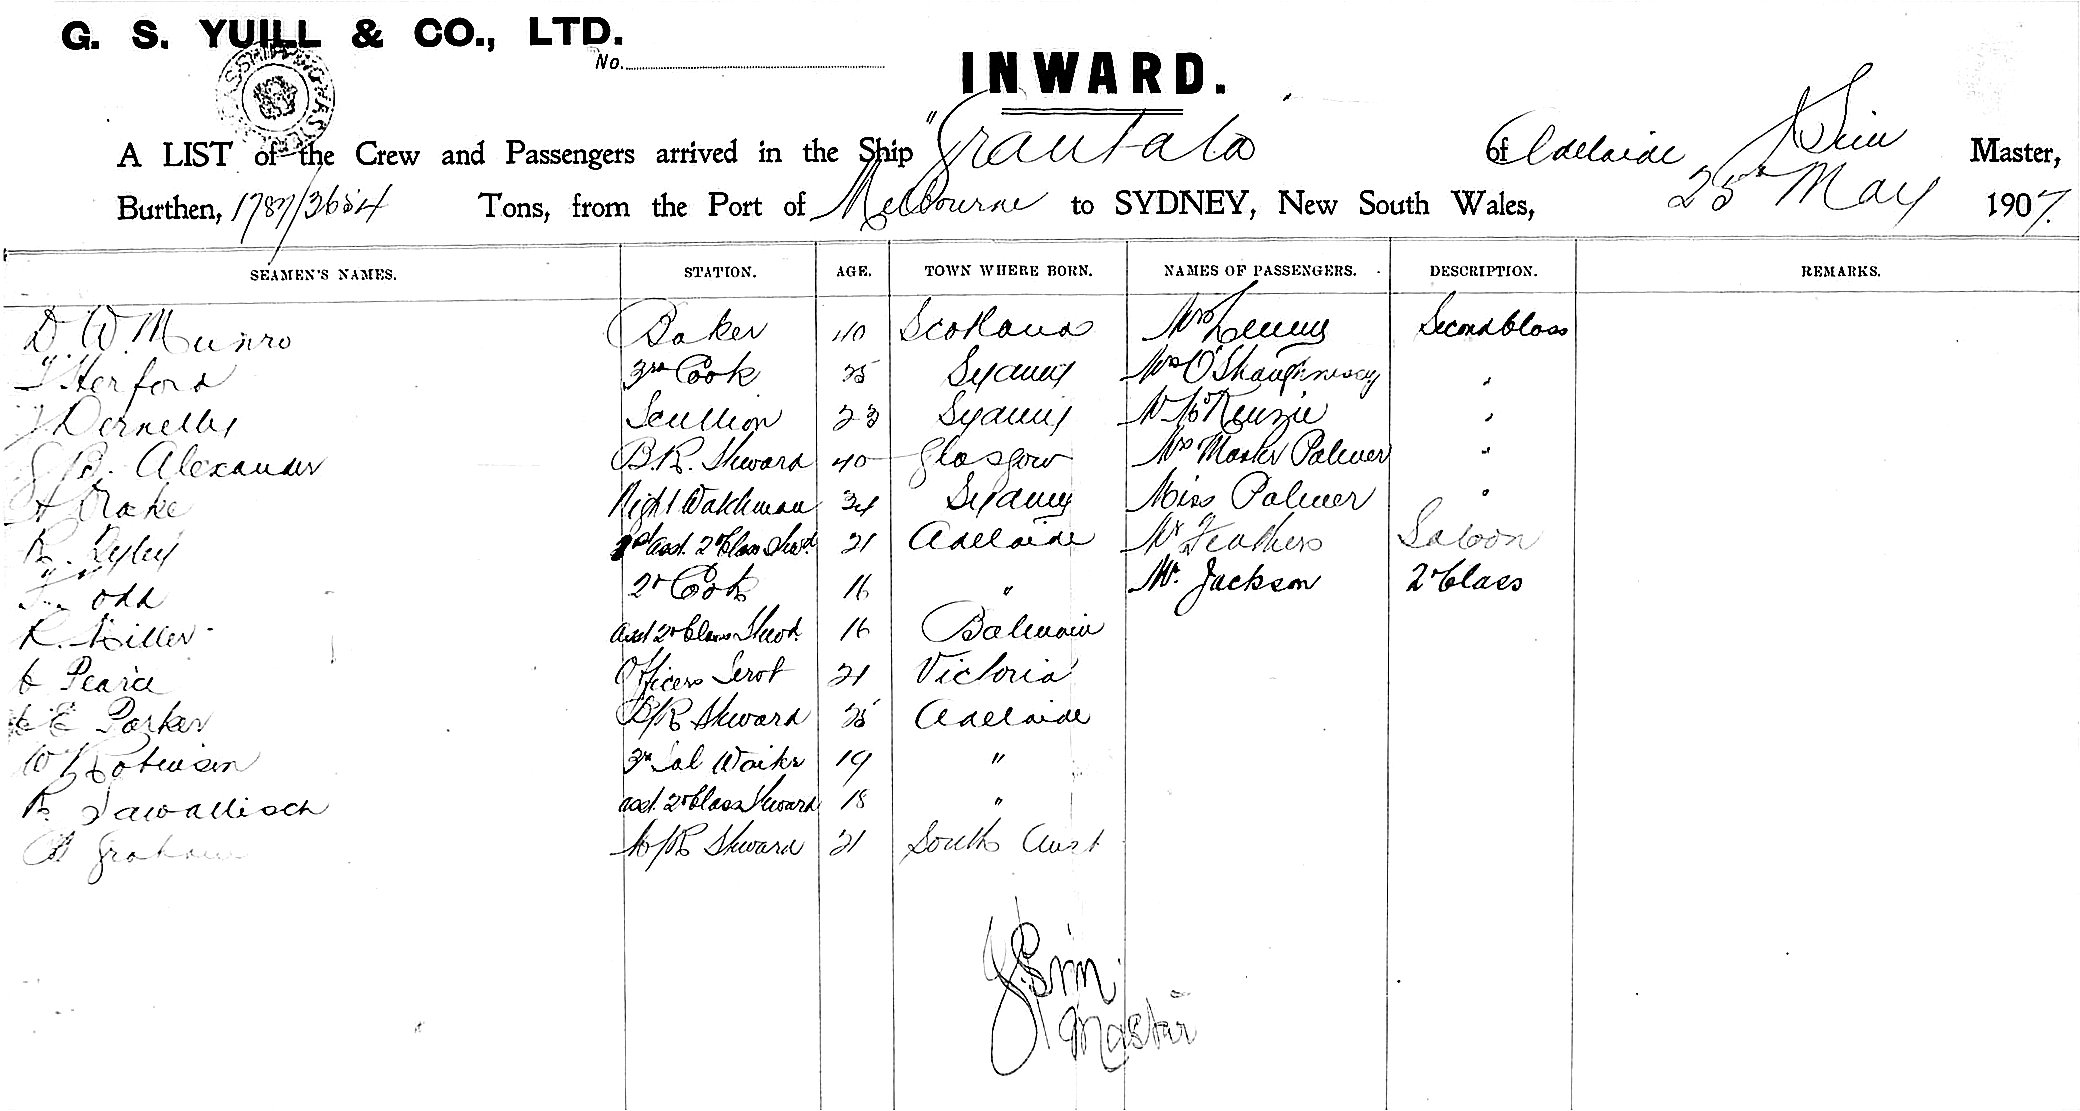 G. S. YUILL & CO., LTD.
No.
INWARD.
A LIST of the Crew and Passengers arrived in the Ship "Grantala" of Adelaide J Sim Master,
Burthen, 1787/3654 Tons, from the Port of Melbourne to SYDNEY, New South Wales, 25th May 1907.
SEAMEN'S NAMES. STATION. AGE. TOWN WHERE BORN. NAMES OF PASSENGERS. DESCRIPTION. REMARKS.
D. W. Munro Baker 40 Scotland Mrs Second Class
T Herford 3rd Cook 25 Sydney Mrs O'Shaughnessy "
J Dernelly Scullion 23 Sydney McKenzie "
Alexander B.R. Steward 40 Glasgow Mrs Master Palmer "
A Drake Night Watchman 34 Sydney Miss Palmer "
R. 1st Asst. 2nd Class Stwd 21 Adelaide Mr Feathers Saloon
Todd 2nd Cook 16 " Mr. Jackson 2nd Class
R. Miller asst 2nd Class Stwd. 16 Balmain
C Pearce Officers Servt 21 Victoria
C E Parker B/R Steward 25 Adelaide
W Robinson 3rd Sal Waiter 19 "
R. Sawallisch asst. 2nd Class Steward 18 "
Graham B/R Steward 21 South Aust
J. Sim
Master